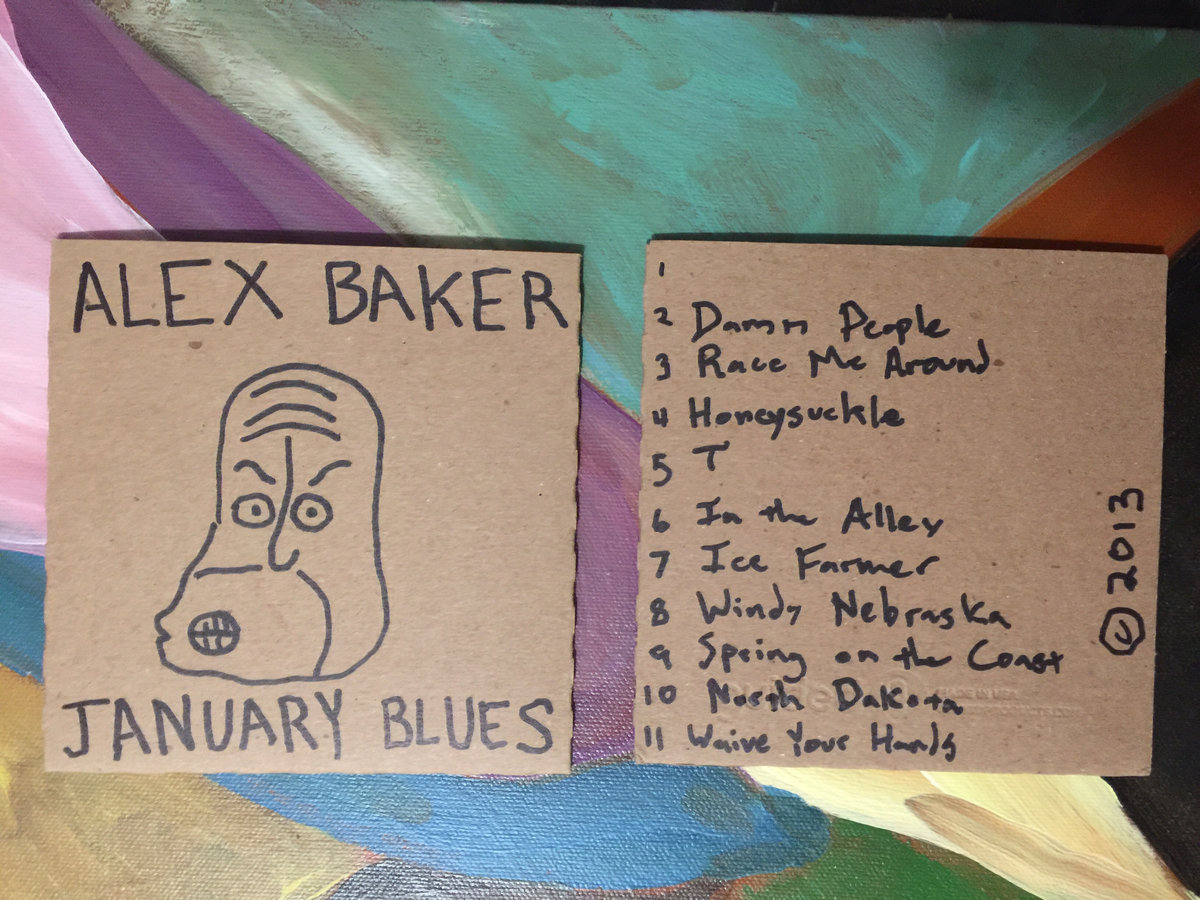 ALEX BAKER
JANUARY BLUES
1
2 Damn People
3 Race Me Around
4 Honeysuckle
5 T
6 In the Alley
7 Ice Farmer
8 Windy Nebraska
9 Spring on the Coast
10 North Dakota
11 Waive Your Hands
© 2013
MADE IN USA